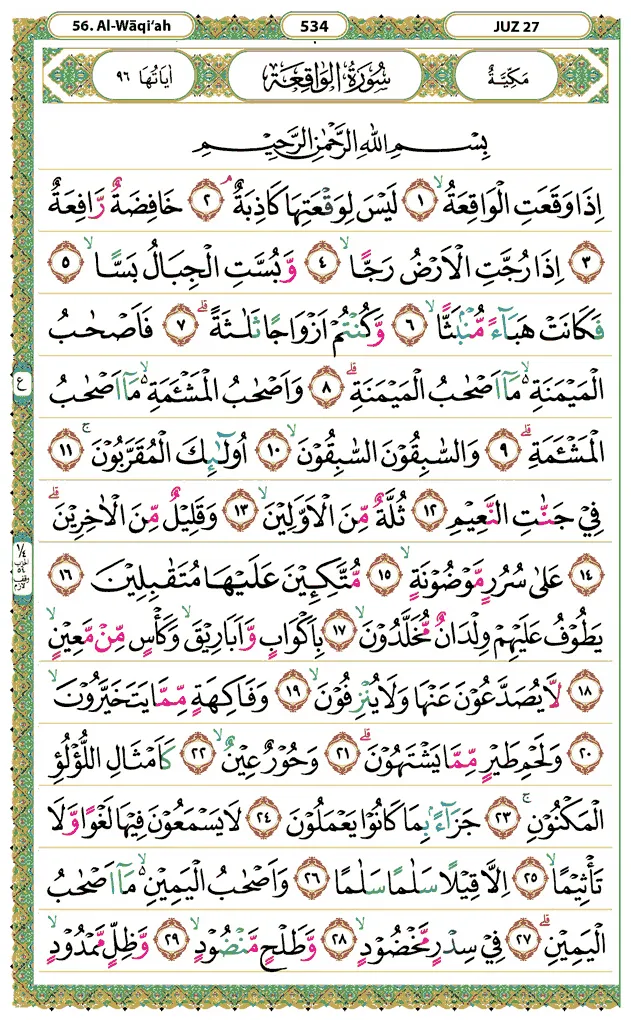 56. Al-Wāqi‘ah
534
JUZ 27
مَكِّيَّةٌ
سُوْرَةُ الْوَاقِعَةِ
اٰيَاتُهَا ٩٦
بِسْمِ اللهِ الرَّحْمٰنِ الرَّحِيْمِ
اِذَا وَقَعَتِ الْوَاقِعَةُۙ ١ لَيْسَ لِوَقْعَتِهَا كَاذِبَةٌۘ ٢ خَافِضَةٌ رَّافِعَةٌ
٣ اِذَا رُجَّتِ الْاَرْضُ رَجًّاۙ ٤ وَّبُسَّتِ الْجِبَالُ بَسًّاۙ ٥
فَكَانَتْ هَبَاۤءً مُّنْۢبَثًّاۙ ٦ وَّكُنْتُمْ اَزْوَاجًا ثَلٰثَةًۗ ٧ فَاَصْحٰبُ
الْمَيْمَنَةِۙ مَآ اَصْحٰبُ الْمَيْمَنَةِۗ ٨ وَاَصْحٰبُ الْمَشْـَٔمَةِۙ مَآ اَصْحٰبُ
الْمَشْـَٔمَةِۗ ٩ وَالسّٰبِقُوْنَ السّٰبِقُوْنَۙ ١٠ اُولٰۤىِٕكَ الْمُقَرَّبُوْنَۚ ١١
فِيْ جَنّٰتِ النَّعِيْمِ ١٢ ثُلَّةٌ مِّنَ الْاَوَّلِيْنَۙ ١٣ وَقَلِيْلٌ مِّنَ الْاٰخِرِيْنَۗ
١٤ عَلٰى سُرُرٍ مَّوْضُوْنَةٍۙ ١٥ مُّتَّكِـِٕيْنَ عَلَيْهَا مُتَقٰبِلِيْنَ ١٦
يَطُوْفُ عَلَيْهِمْ وِلْدَانٌ مُّخَلَّدُوْنَۙ ١٧ بِاَكْوَابٍ وَّاَبَارِيْقَۙ وَكَأْسٍ مِّنْ مَّعِيْنٍۙ
١٨ لَّا يُصَدَّعُوْنَ عَنْهَا وَلَا يُنْزِفُوْنَۙ ١٩ وَفَاكِهَةٍ مِّمَّا يَتَخَيَّرُوْنَۙ
٢٠ وَلَحْمِ طَيْرٍ مِّمَّا يَشْتَهُوْنَۗ ٢١ وَحُوْرٌ عِيْنٌۙ ٢٢ كَاَمْثَالِ اللُّؤْلُؤِ
الْمَكْنُوْنِۚ ٢٣ جَزَاۤءًۢ بِمَا كَانُوْا يَعْمَلُوْنَ ٢٤ لَا يَسْمَعُوْنَ فِيْهَا لَغْوًا وَّلَا
تَأْثِيْمًاۙ ٢٥ اِلَّا قِيْلًا سَلٰمًا سَلٰمًا ٢٦ وَاَصْحٰبُ الْيَمِيْنِۙ مَآ اَصْحٰبُ
الْيَمِيْنِۗ ٢٧ فِيْ سِدْرٍ مَّخْضُوْدٍۙ ٢٨ وَّطَلْحٍ مَّنْضُوْدٍۙ ٢٩ وَّظِلٍّ مَّمْدُوْدٍۙ
ع